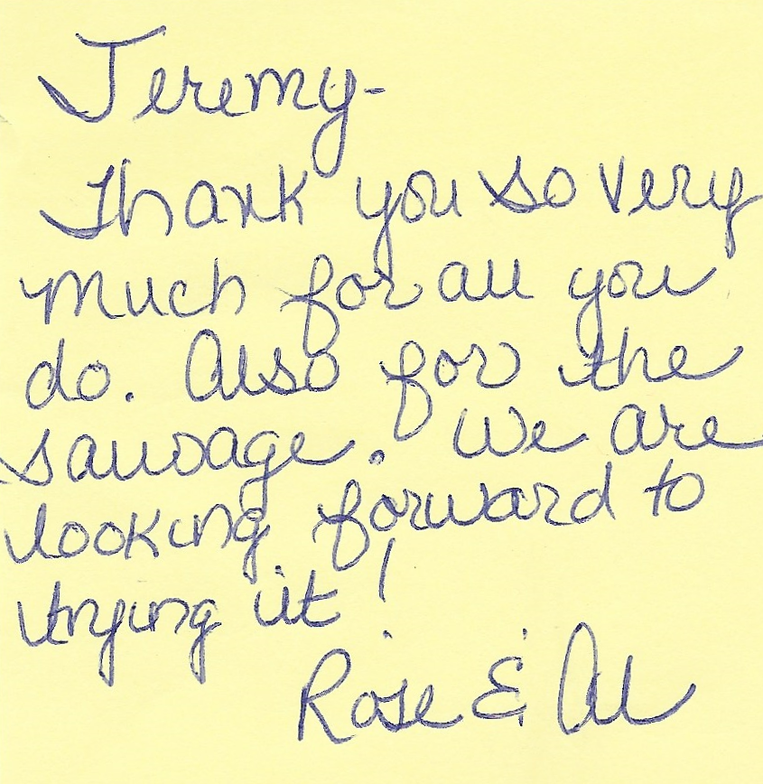 Jeremy-
Thank you so very
much for all you
do. Also for the
sausage. We are
looking forward to
trying it!
Rose & Al